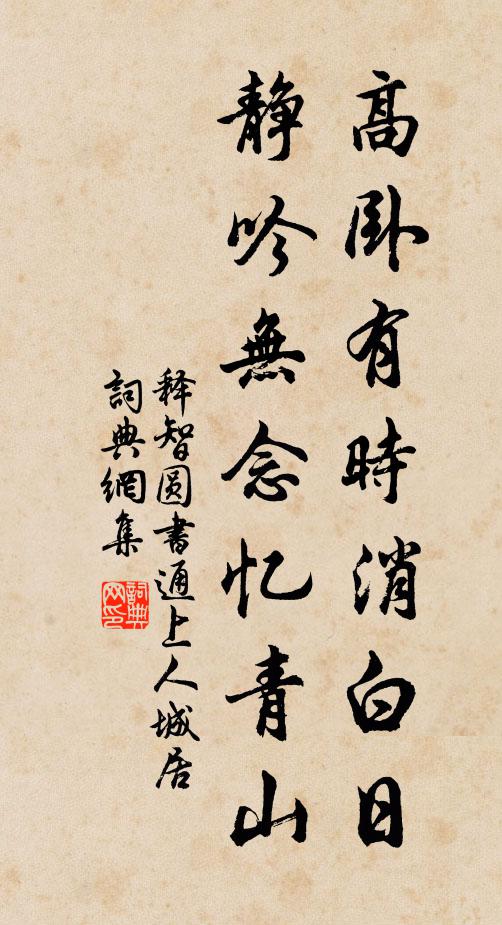 高卧有時消白日
静吟無念忆青山
释智圆書通上人城居
詞典網集
詞典
网印